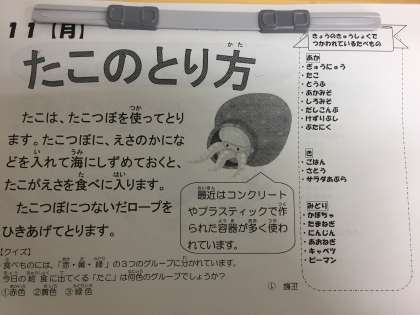 11【月】
たこのとり方
かた
たこは、たこつぼを使ってとり
つか
ます。たこつぼに、えさのかにな
どを入れて海にしずめておくと、
い うみ
たこがえさを食べに入ります。
た はい
たこつぼにつないだロープを
ひきあげてとります。
最近はコンクリート
さいきん
やプラスティックで作
つく
られた容器が多く使わ
ようき おお つか
れています。
【クイズ】
食べものには、「赤・黄・緑」の3つのグループに分かれています。
今日の給食に出てくる「たこ」は何色のグループでしょうか?
①赤色 ②黄色 ③緑色
きょうのきゅうしょくで
つかわれているたべもの
あか
・ぎゅうにゅう
・たこ
・とうふ
・あかみそ
・しろみそ
・だしこんぶ
・けずりぶし
・ぶたにく
き
・ごはん
・さとう
・サラダあぶら
みどり
・かぼちゃ
・たまねぎ
・にんじん
・あおねぎ
・キャベツ
・ピーマン
①